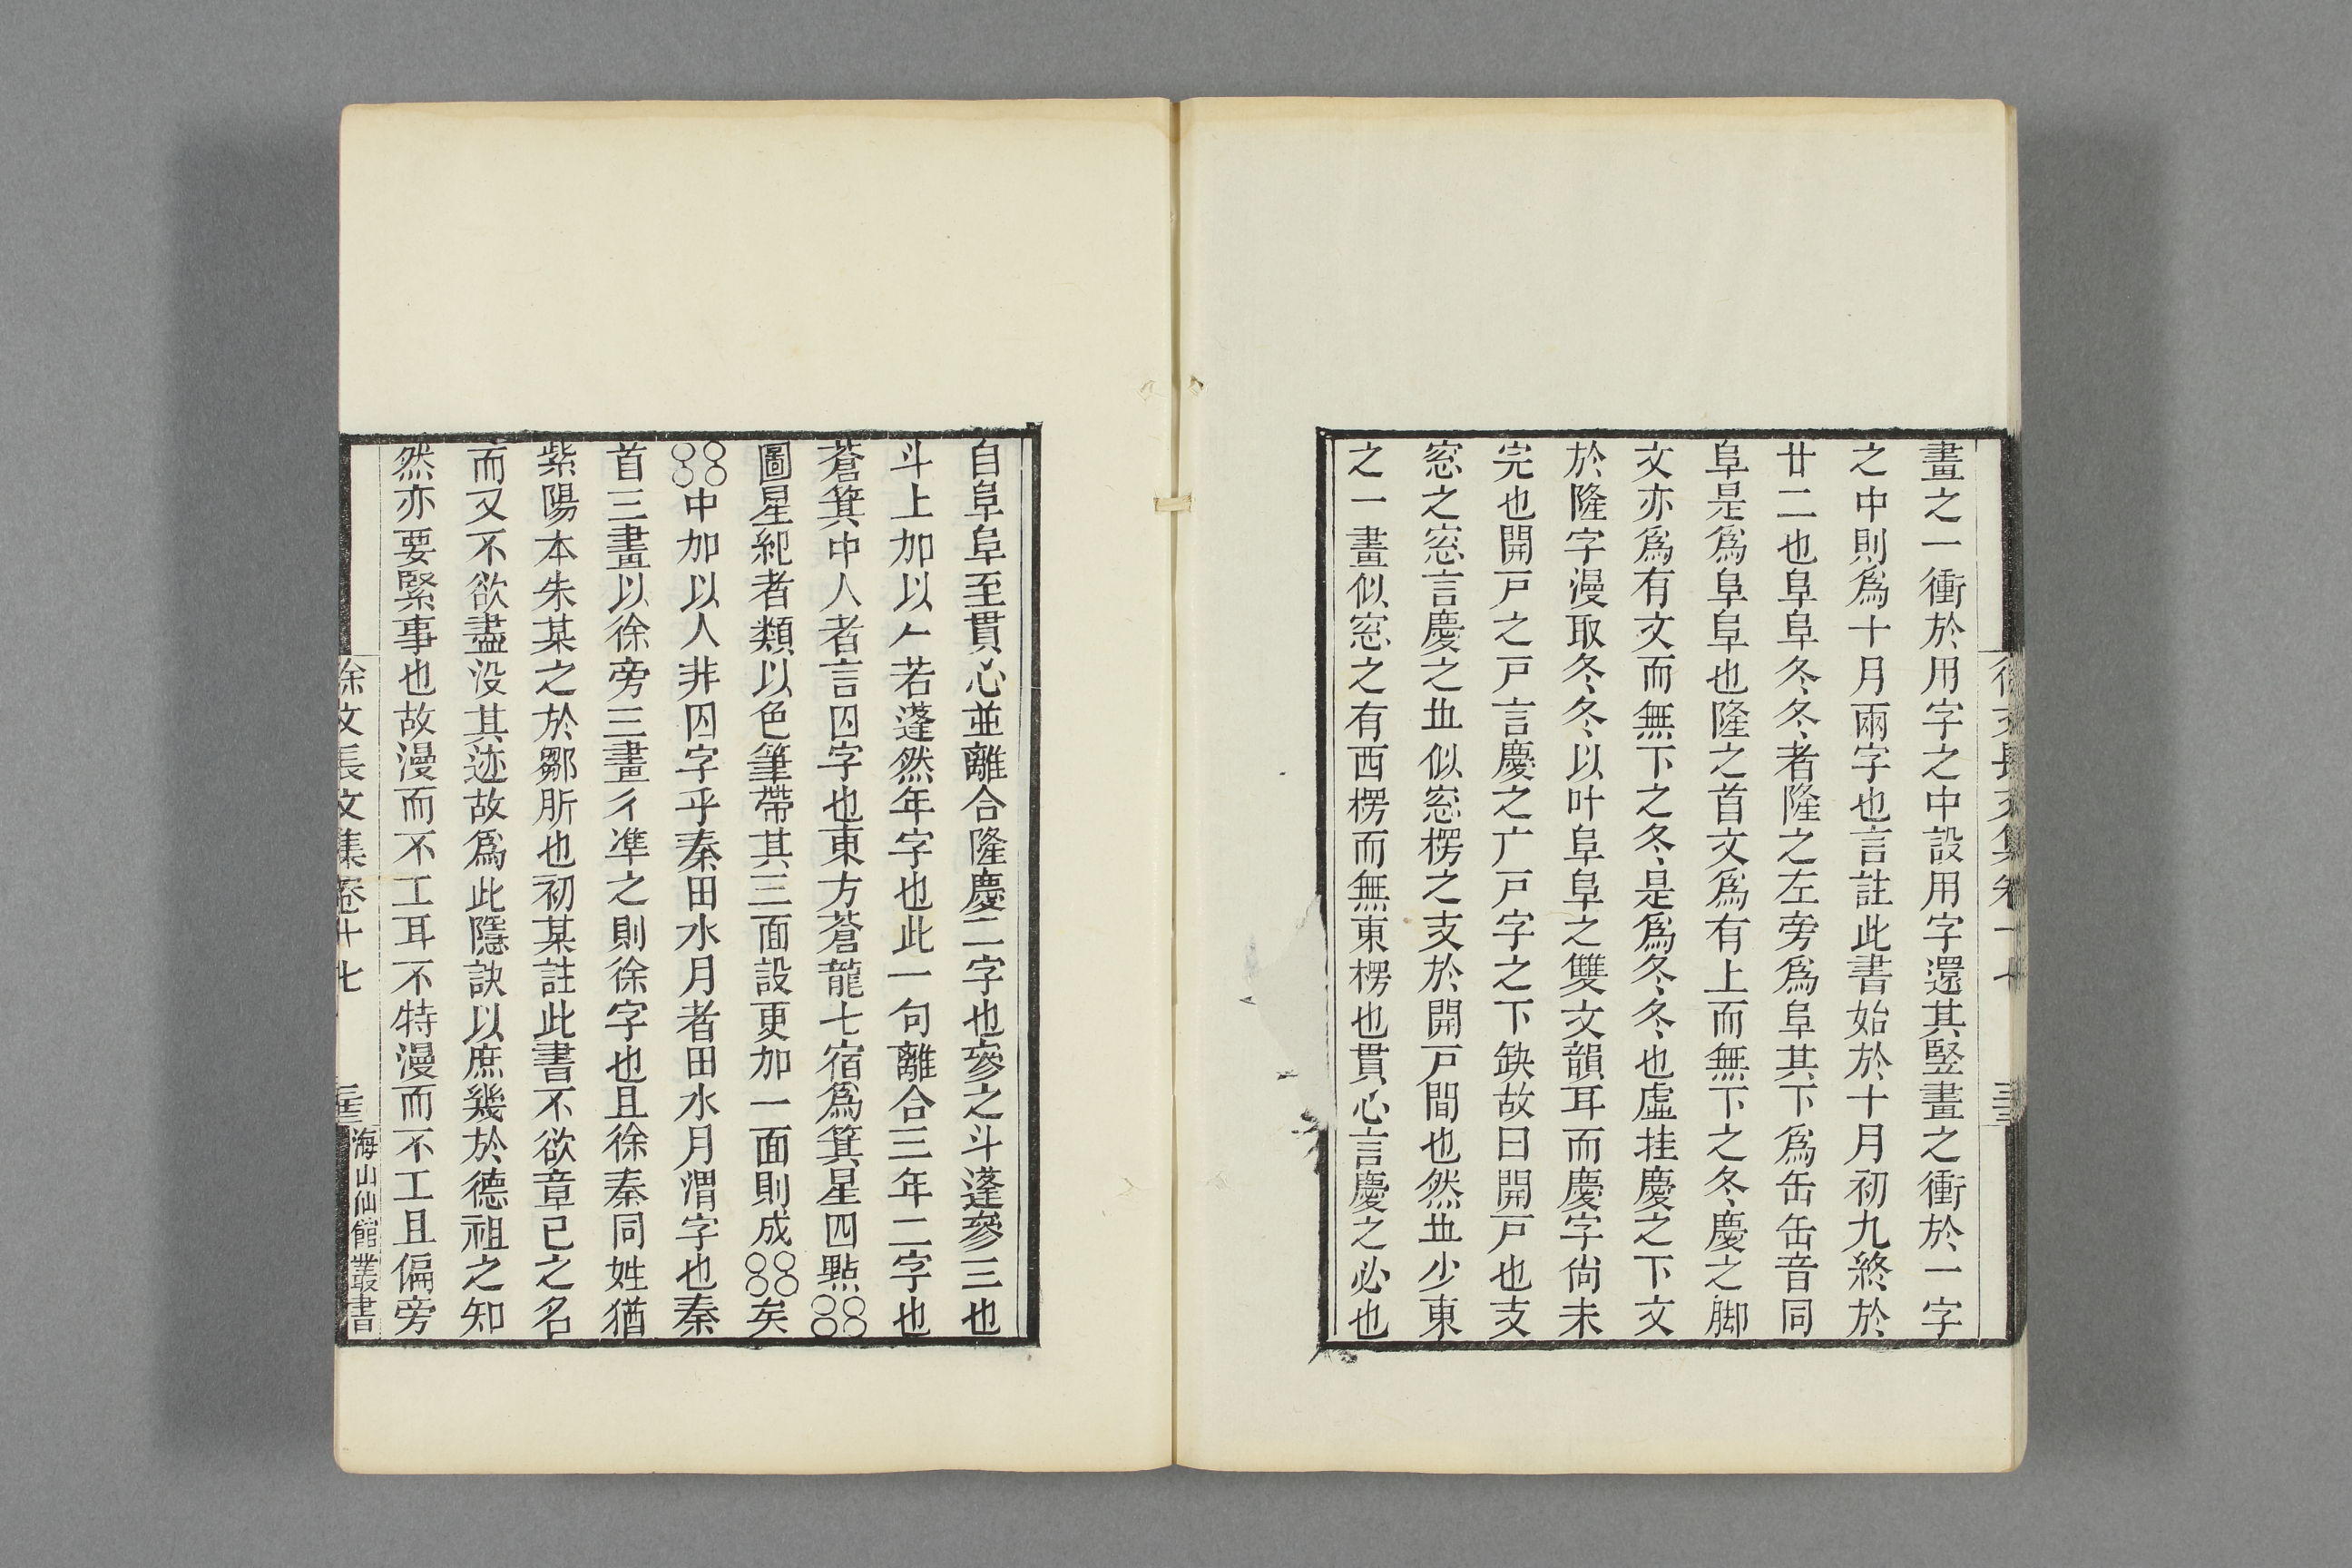 徐文長文集卷十七
畫之一衝於用字之中設用字還其竪畫之衝於一字
之中則爲十月兩字也言註此書始於十月初九終於
廿二也阜阜冬冬者隆之左旁爲阜其下爲缶缶音同
阜是爲阜阜也隆之首文爲有上而無下之冬慶之脚
文亦爲有文而無下之冬是爲冬冬也虛挂慶之下文
於隆字漫取冬冬以叶阜阜之雙文韻耳而慶字尙未
完也開戸之戸言慶之广戸字之下缺故曰開戸也支
窓之窓言慶之㐀似窓楞之支於開戸間也然㐀少東
之一畫似窓之有西楞而無東楞也貫心言慶之必也
自阜阜至貫心並離合隆慶二字也參之斗蓬參三也
斗上加以𠂉若蓬然年字也此一句離合三年二字也
蒼箕中人者言囚字也東方蒼龍七宿爲箕星四點○○○○
圖星紀者類以色筆帶其三面設更加一面則成○○○○矣
○○○○中加以人非囚字乎秦田水月者田水月渭字也秦
首三畫以徐旁三畫彳準之則徐字也且徐秦同姓猶
紫陽本朱某之於鄒訢也初某註此書不欲章已之名
而又不欲盡没其迹故爲此隱訣以庶幾於德祖之知
然亦要緊事也故漫而不工耳不特漫而不工且偏旁
徐文長文集卷十七
海山仙館叢書